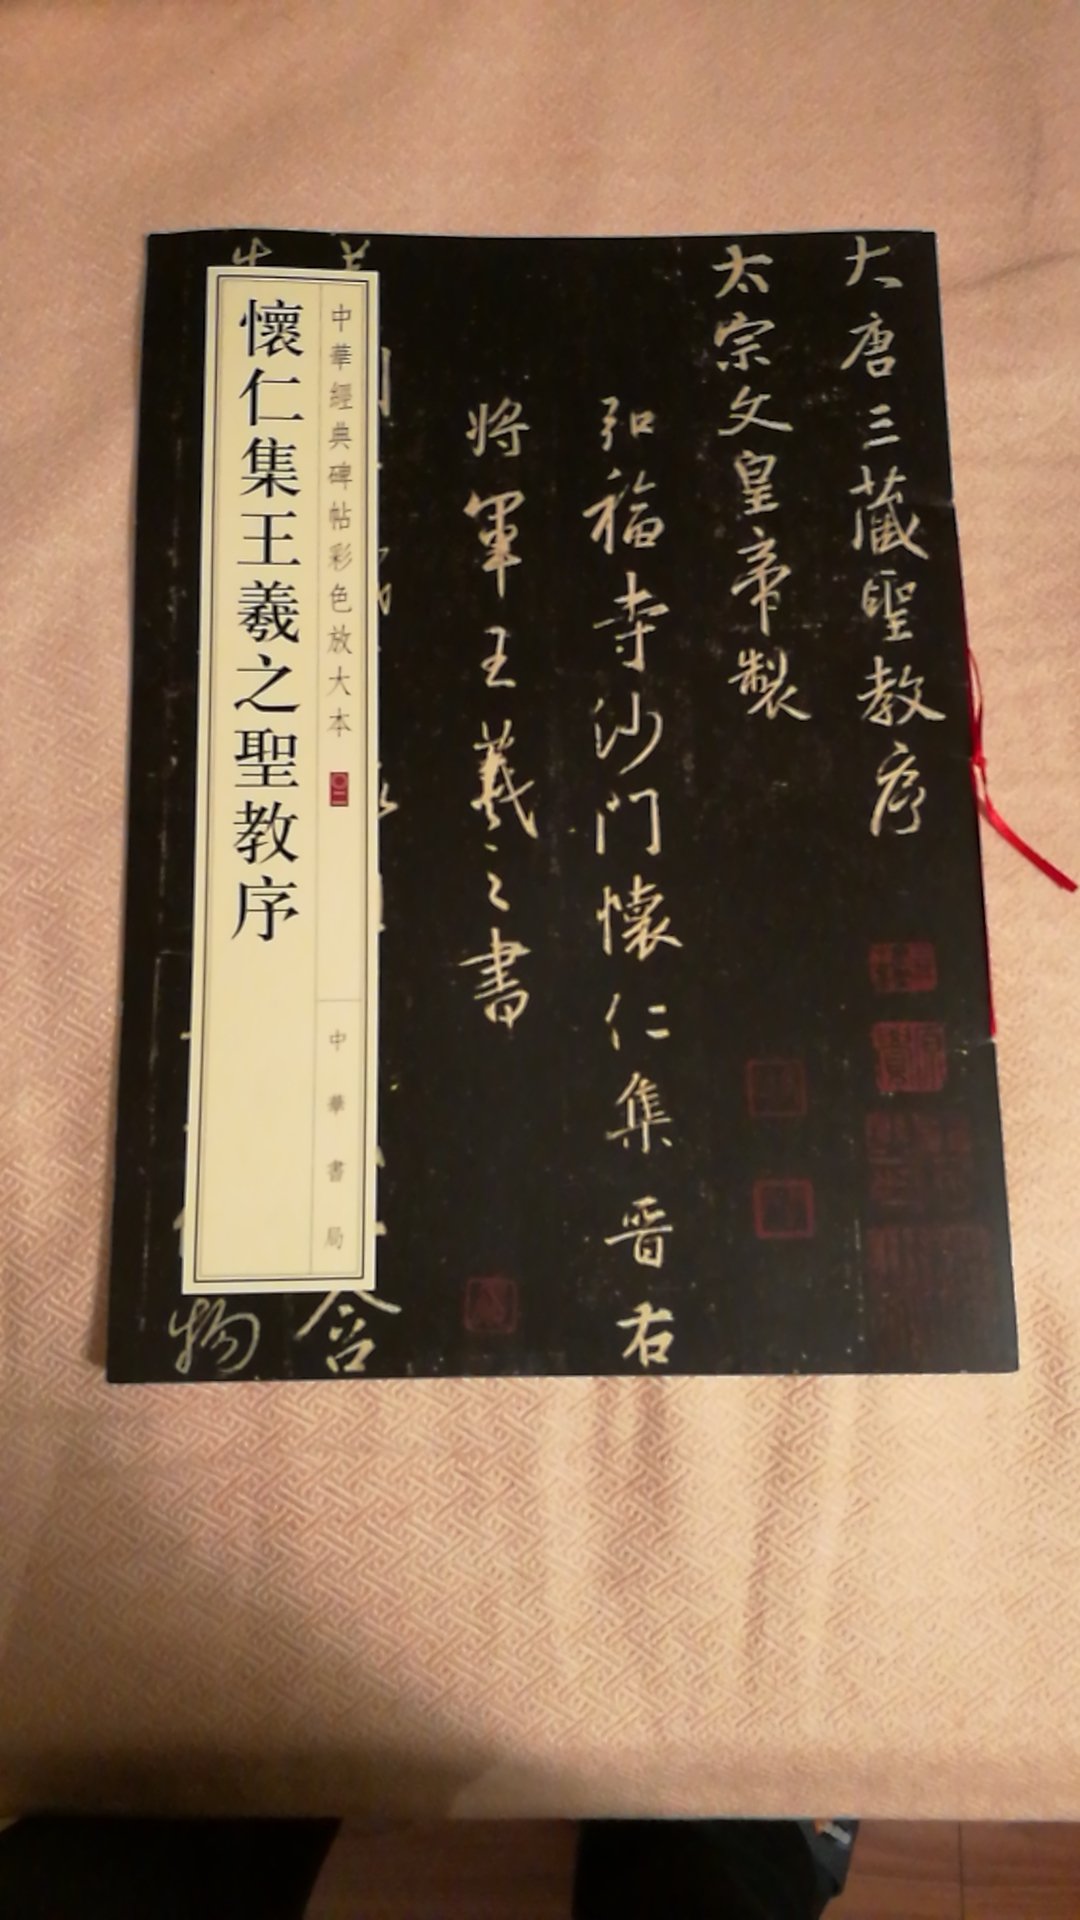 大唐三藏聖教序
太宗文皇帝製
弘福寺沙門懷仁集晉右
將軍王羲之書
含
物
中華經典碑帖彩色放大本
中華書局
懷仁集王羲之聖教序